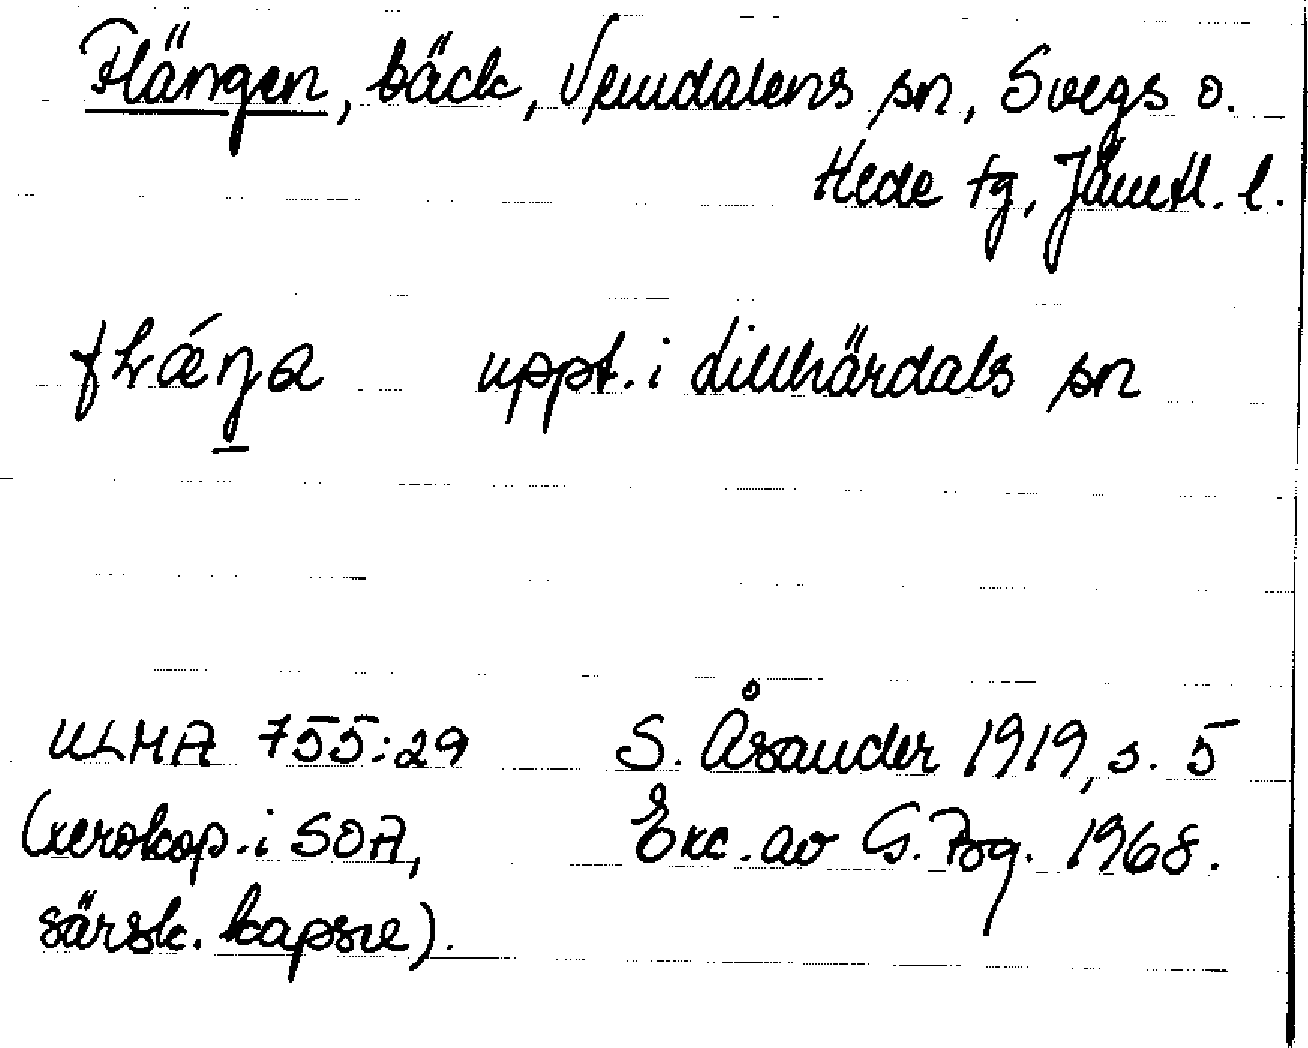 Flängen, bäck, Vemdalens sn, Svegs o.
Hede tg, Jämtl. l.
uppt. i Lillhärdals sn
ULMA 755:29 S. Åsander 1919, s. 5
(xerokop. i SOA, Exc. av G. Bg. 1968.
särsk. kapsel).